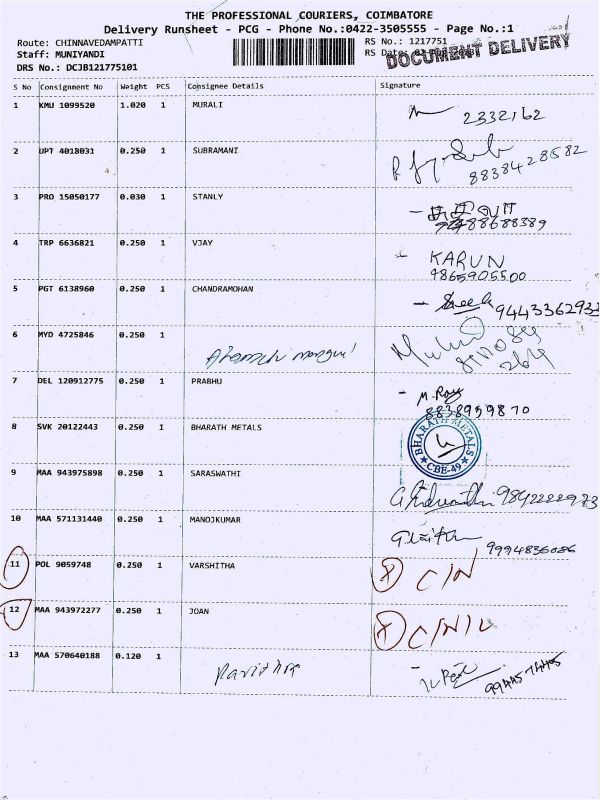 THE PROFESSIONAL COURIERS, COIMBATORE
Delivery Runsheet - PCG - Phone No.:0422-3505555 - Page No.:1
Route: CHINNAVEDAMPATTI RS No.: 1217751
Staff: MUNIYANDI RS Date:
DOCUMENT DELIVERY
DRS No.: DCJB121775101
S No Consignment No Weight PCS Consignee Details Signature
1 KMU 1099520 1.020 1 MURALI
2332162
2 UPT 4018031 0.250 1 SUBRAMANI
8838428582
3 PRO 15050177 0.030 1 STANLY
88688389
4 TRP 6636821 0.250 1 VJAY
KARUN
9865905500
5 PGT 6138960 0.250 1 CHANDRAMOHAN
9443362933
6 MYD 4725846 0.250 1
7 DEL 120912775 0.250 1 PRABHU
M. Roy
8838959870
8 SVK 20122443 0.250 1 BHARATH METALS
BHARATH METALS
CBE-49
9 MAA 943975898 0.250 1 SARASWATHI
9842222973
10 MAA 571131440 0.250 1 MANOJKUMAR
9994836086
11 POL 9059748 0.250 1 VARSHITHA
C/N
12 MAA 943972277 0.250 1 JOAN
C/N/U
13 MAA 570640188 0.120 1 Pavithra